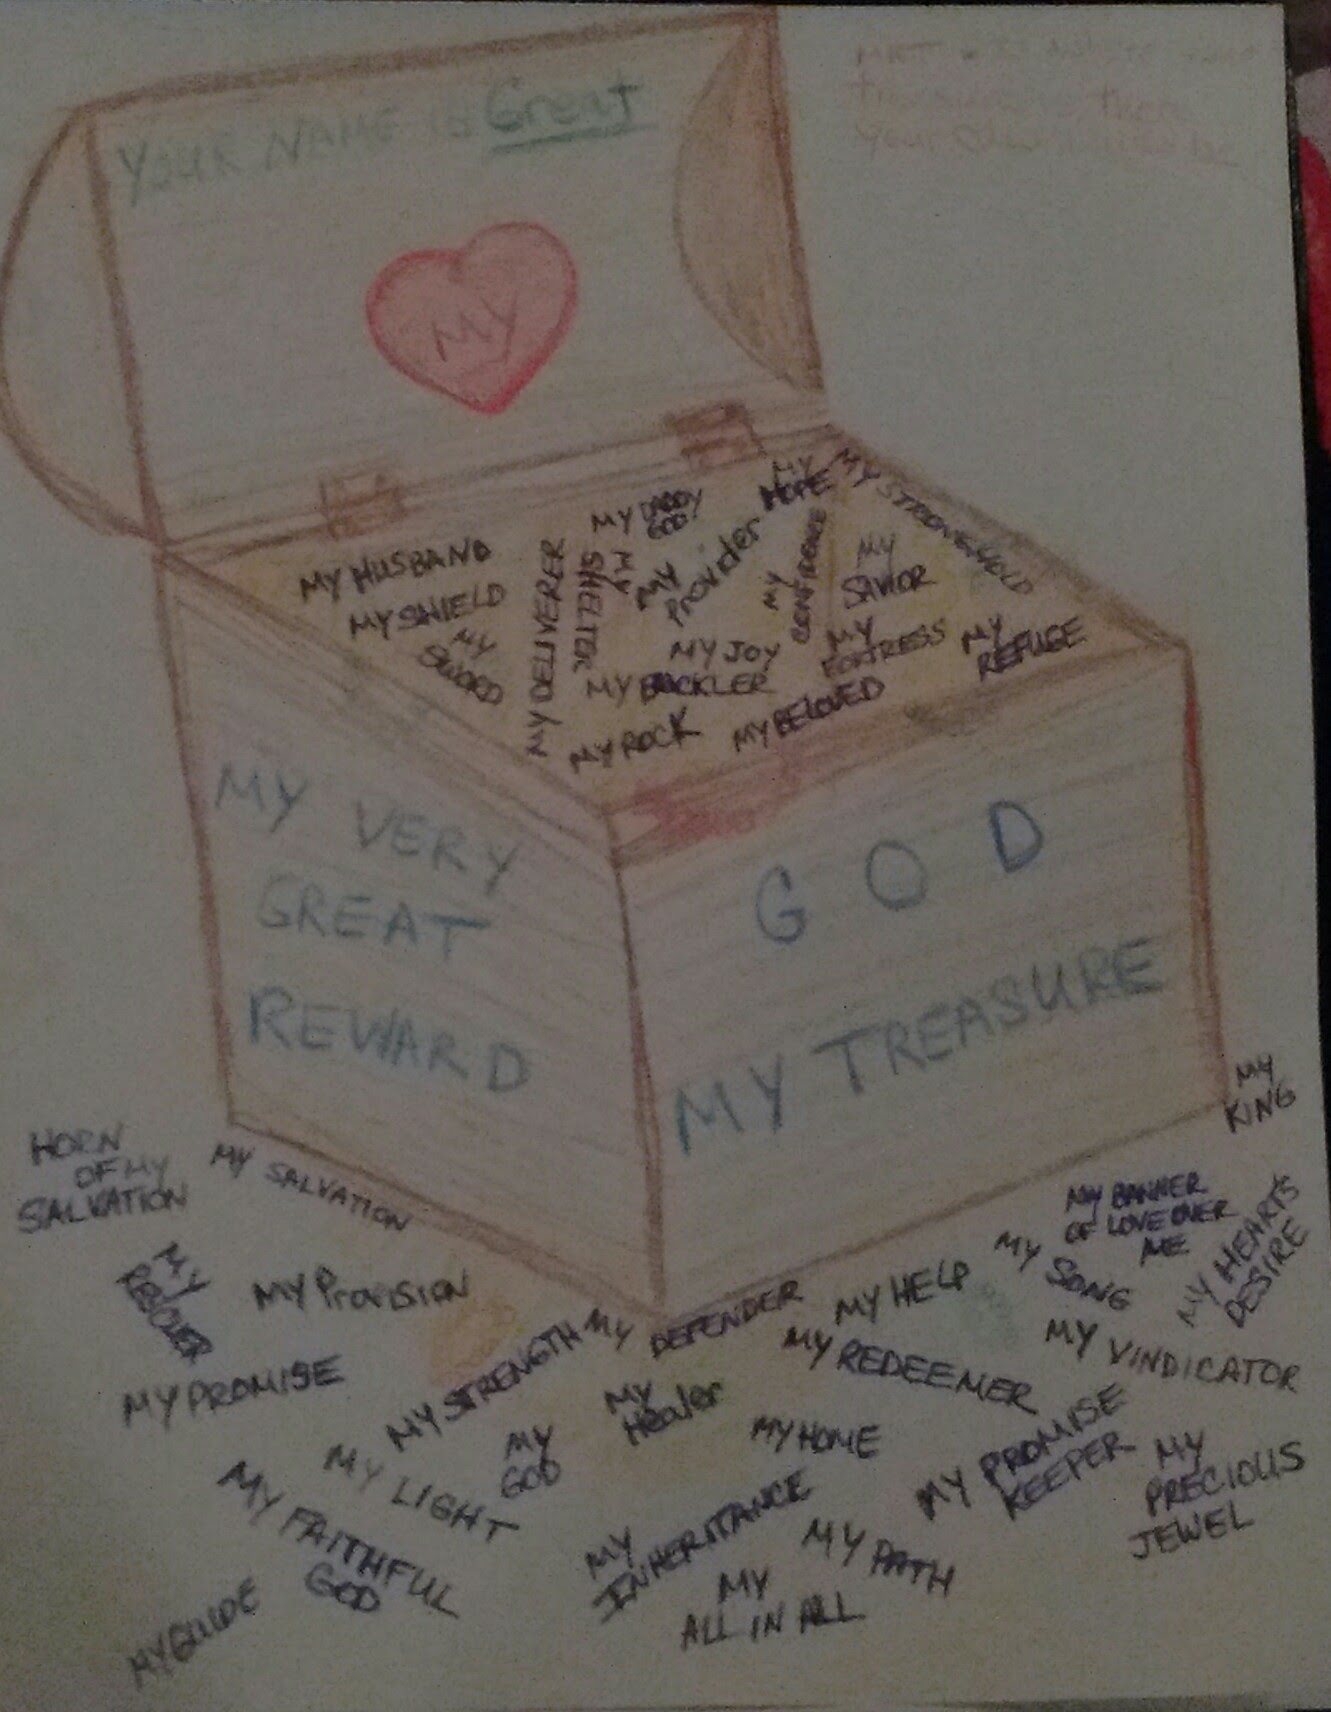 YOUR NAME IS Great
MY
your
MY HUSBAND
MY SHIELD
MY
SWORD
MY DELIVERER
MY
SHELTER
MY DADDY
GOD!
MY
Provider
MY
HOPE
MY STRONGHOLD
MY
CONFIDENCE
MY
SAVIOR
MY JOY
MY BUCKLER
MY
FORTRESS
MY
REFUGE
MY ROCK
MY BELOVED
MY VERY
GREAT
REWARD
GOD
MY TREASURE
HORN
OF MY
SALVATION
MY SALVATION
MY
KING
MY
RESCUER
MY Provision
MY PROMISE
MY STRENGTH
MY DEFENDER
MY HELP
MY SONG
MY BANNER
OF LOVE OVER
ME
MY HEARTS
DESIRE
MY REDEEMER
MY VINDICATOR
MY
Healer
MY LIGHT
MY
GOD
MY HOME
MY PROMISE
KEEPER
MY
PRECIOUS
JEWEL
MY FAITHFUL
GOD
MY
INHERITANCE
MY PATH
MY GUIDE
MY
ALL IN ALL